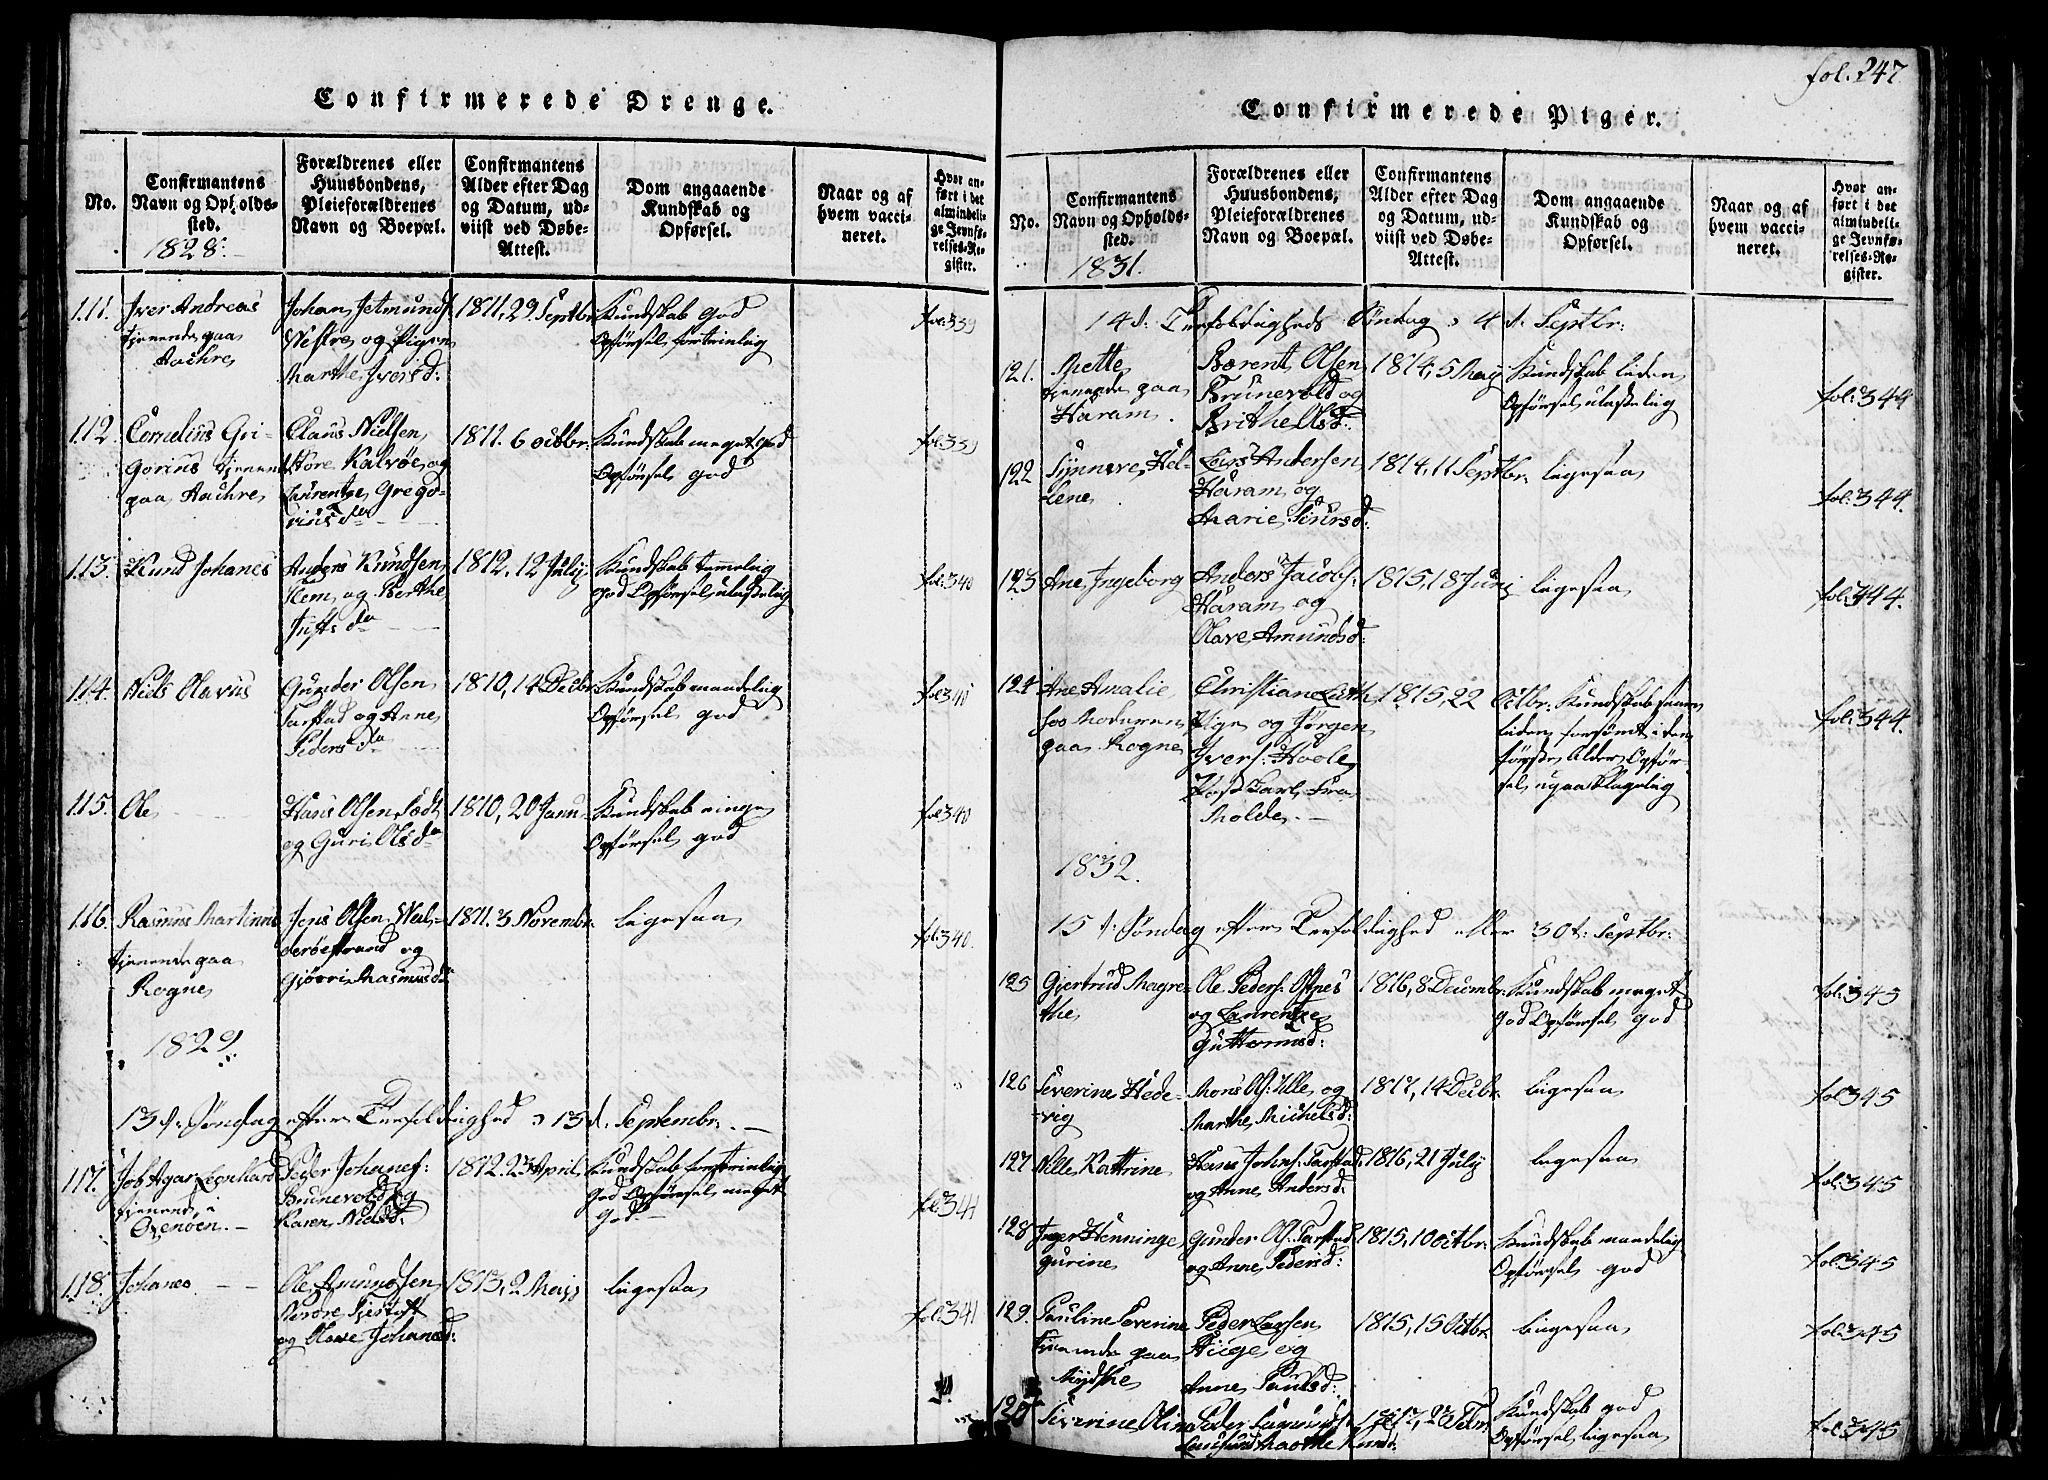 fol. 247
Confirmerede Drenge.
No.
Confirmantens
Navn og Opholds-
sted.
1828.
Forældrenes eller
Huusbondens,
Pleieforældrenes
Navn og Boepæl.
Confirmantens
Alder efter Dag
og Datum, ud-
viist ved Døbe-
Attest.
Dom angaaende
Kundskab og
Opførsel.
Naar og af
hvem vacci-
neret.
Hvor an-
ført i det
almindeli-
ge Jevnfø-
relses-Re-
gister.
111.
Iver Andreas
tjenende paa
Aachre
Johan Jetmunds.
Nestre og Pigen
Marthe Iversd:
1811, 29 Septbr.
Kundskab god
Opførsel fortrinlig
fol:339
112.
Cornelius Gri-
gorius tjenend
paa Aachre
Claus Nielsen
Store Kalvøe og
Laurentse Grego-
rius dr
1811. 6 octbr.
Kundskab meget god
Opførsel god
fol:339
113.
Knud Johanes
Anders Knudsen
Hem, og Berthe
Jufts dr
1812, 12 July
Kundskab temmelig
god Opførsel ulastelig
fol:340
114.
Niels Olavus
Gunder Olsen
Tarstad og Anne
Peders dr
1810, 14 Decbr.
Kundskab maadelig
Opførsel god
fol340
115.
Ole
Hans Olsen
og Guri Olsdr
1810, 20 Janu
Kundskab ringe
Opførsel god
fol340
116.
Rasmus Martinus
tjenende paa
Rogne
Jens Olsen Wal-
derøestrand og
Gjøvri Rasmusd
1811. 3 Novembr.
ligesaa
fol:340.
1829.
13 d: Søndag efter Treefoldighed 13 d. Septembr.
117.
Job Agar Leonhard
tjenende i
Oxenøen.
Peder Johanes:
Brunevold og
Karen Nielsd:
1812. 23 April
Kundskab fortrinlig
god Opførsel meget
god.
fol:341
118.
Johanes
Ole Amundsen
Nordre Fjørtoft
og Olave Johansd:
1813, 2 May
ligesaa
fol:341
Confirmerede Piger.
No.
Confirmantens
Navn og Opholds-
sted.
1831.
Forældrenes eller
Huusbondens,
Pleieforældrenes
Navn og Boepæl.
Confirmantens
Alder efter Dag
og Datum, ud-
viist ved Døbe-
Attest.
Dom angaaende
Kundskab og
Opførsel.
Naar og af
hvem vacci-
neret.
Hvor an-
ført i det
almindeli-
ge Jevnfø-
relses-Re-
gister.
14 d: Treefoldigheds Søndag 4 d. Septbr:
121.
Mette
tjenende paa
Haram.
Berent Olsen
Brunevold og
Brithe Olsd:
1814, 5 May
Kundskab liden
Opførsel ulastelig
fol:344
122
Synneve Hel-
lene
Lars Andersen
Haram og
Marie Siursd:
1814, 11 Septbr.
ligesaa
fol:344.
123
Ane Ingeborg
Anders Jacobs:
Haram og
Olave Amundsd:
1815, 18 Juny
ligesaa
fol:344.
124
Ane Amalie
hos Moderen
paa Rogne
Christiane
Pige og Jørgen
Ivers: Hoele
fra
Molde.
1815, 22 Octbr:
Kundskab saare
liden forsømt i den
første Alder Opfør-
sel upaaklagelig
fol:344.
1832.
15 d. Søndag efter Treefoldighed eller 30 t: Septbr:
125
Gjertrud Magre-
the
Ole Peders: Ostnes
og Laurentse
Guttormsd:
1816, 8 Decembr.
Kundskab meget
god Opførsel god
fol:345
126
Severine Hede-
vig
Mons Ols: Ulle og
Marthe Michelsd:
1817, 14 Decbr.
ligesaa
fol345
127
Nelle Kattrine
Hans Johns: Tarstad
og Anne Andersd:
1816, 21 July
ligesaa
fol:345
128
Inger Henninge
gurine
Gunder Ols: Tarstad
og Anne Pedersd:
1815, 10 octbr.
Kundskab maadelig
Opførsel god
fol:345
129.
Pauline Severine
tjenende paa
Peder Larsen
og
Anne Paulsd:
1815, 15 Octbr.
ligesaa
fol:345
130
Severine Olina
Peder
Marthe Knuds.
1817, 23 Febr.
Kundskab god
Opførsel ligesaa
fol:345